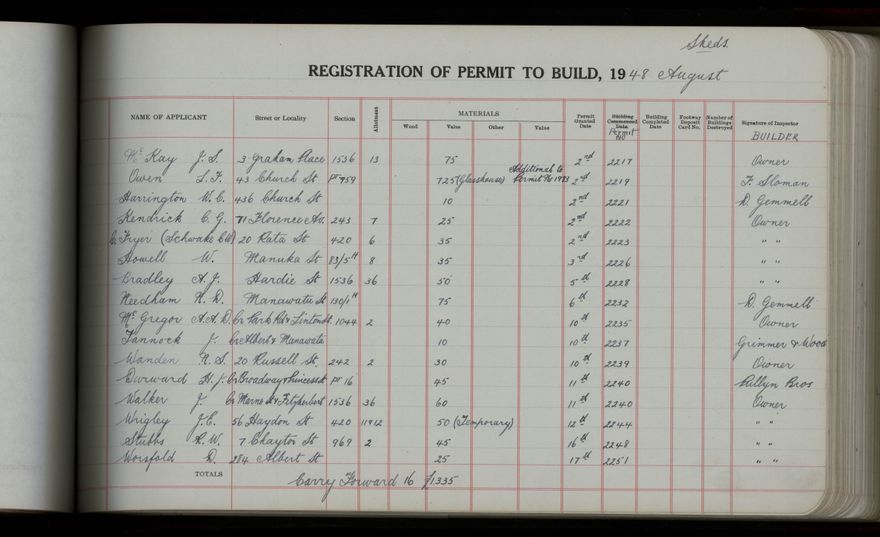 Sheds
REGISTRATION OF PERMIT TO BUILD, 1948 August
NAME OF APPLICANT Street or Locality Section Allotment MATERIALS Wood Value Other Value Permit Granted Date Building Commenced Date Permit No Building Completed Date Footway Deposit Card No. Number of Buildings Destroyed Signature of Inspector BUILDER
McKay J. S. 3 Graham Place 1536 13 75 2nd 2217 Owner
Owen L. F. 43 Church St pt 959 725 (Glasshouse) Additional to Permit No 1983 2nd 2219 F. Sloman
Harrington W. C. 436 Church St 10 2nd 2221 D. Gemmell
Kendrick C. G. 71 Florence Av. 243 7 25 2nd 2222 Owner
Fryer (Schwake CW) 20 Rata St 420 6 35 2nd 2223 " "
Howell W. Manuka St 83/5H 8 35 3rd 2226 " "
Bradley A. J. Hardie St 1536 36 50 5th 2228 " "
Needham R. D. Manawatu St 130/1H 75 6th 2232 D. Gemmell
McGregor A. A. D. Cr Park Rd & Linton St. 1044 2 40 10th 2235 Owner
Tannock J. Cr Albert & Manawatu 10 10th 2237 Grimmer & Wood
Wanden R. S. 20 Russell St. 242 2 30 10th 2239 Owner
Durward H. J. Cr Broadway & Princess St pt 16 45 11th 2240 Pullyn Bros
Walker J. Cr Marne St & Fitzherbert 1536 36 60 11th 2240 Owner
Wrigley J. C. 56 Haydon St 420 11 & 12 50 (Temporary) 12th 2244 " "
Stubbs R. W. 7 Chaytor St 969 2 45 16th 2248 " "
Worsfold D. 284 Albert St 25 17th 2251 " "
TOTALS Carry Forward 16 £1335